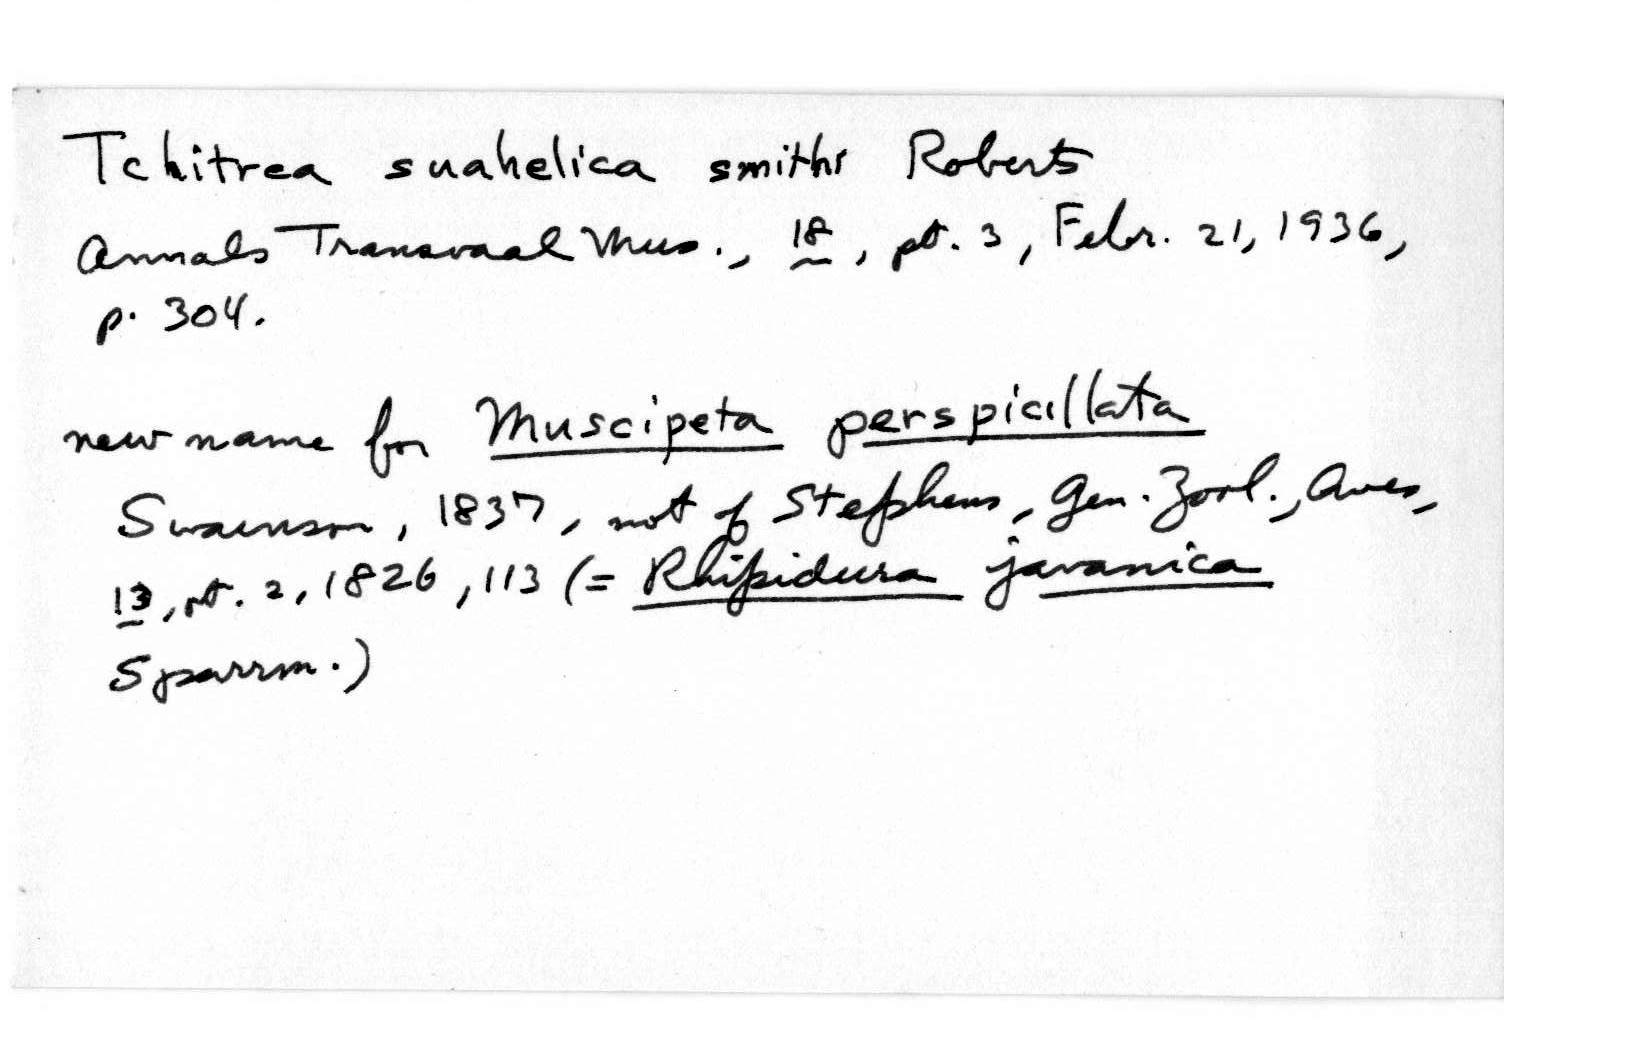 Tchitrea suahelica smithi Roberts
Annals Transvaal Mus., 18, pt. 3, Febr. 21, 1936,
p. 304.
new name for Muscipeta perspicillata
Swainson, 1837, not of Stephens, Gen. Zool., Aves,
13, pt. 2, 1826, 113 (= Rhipidura javanica
Sparrm.)